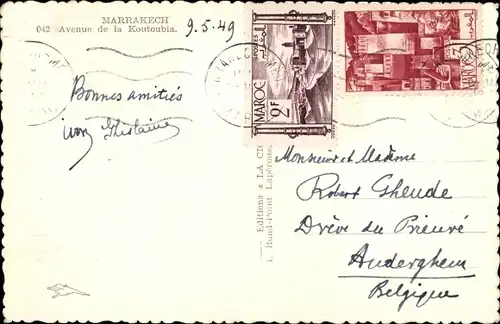 MARRAKECH
042 Avenue de la Koutoubia.
9.5.49
Bonnes amitiés
Ghislaine
Editions "LA CI
Rond-Point Lapérouse
POSTES
MAROC
2F
MAROC
Monsieur et Madame
Robert Gheude
Drève du Prieuré
Auderghem
Belgique